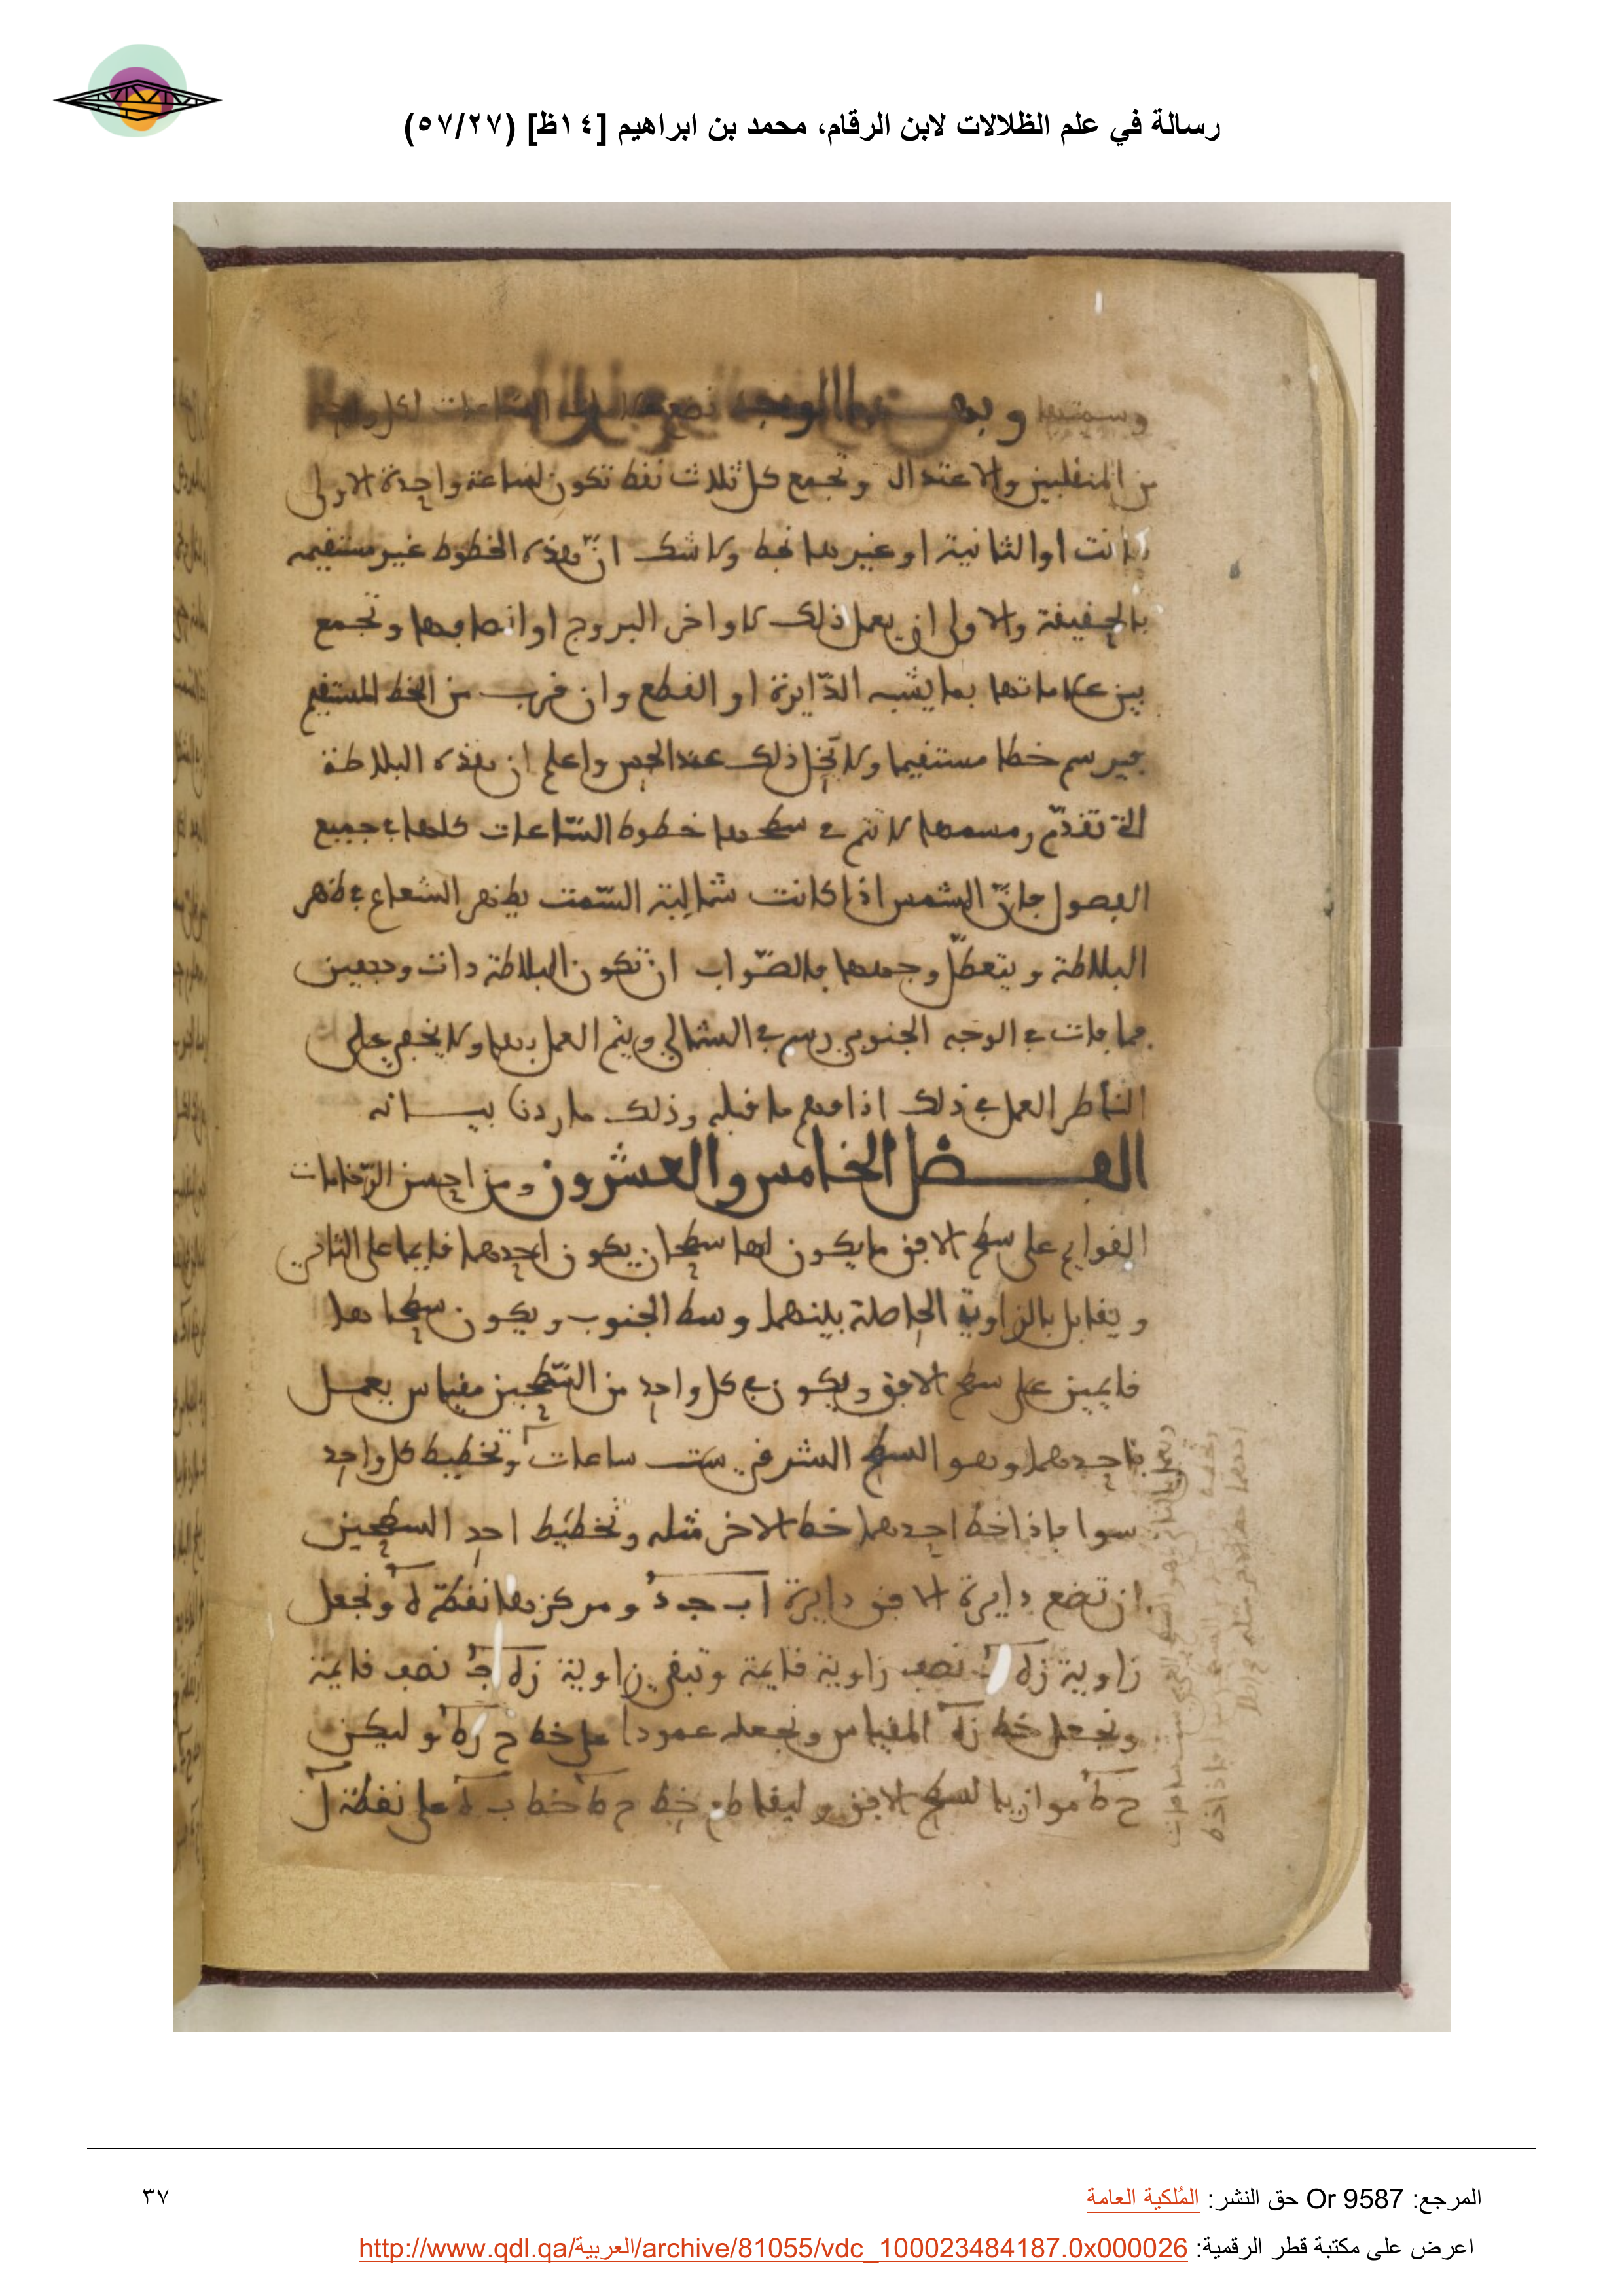 رسالة في علم الظلالات لابن الرقام، محمد بن ابراهيم [١٤ظ] (٥٧/٢٧)
وسمتها وبهذا الوجه تضع علامات الساعات لكل واحد
من المنقلبين والاعتدال وتجمع كل ثلاث نقط تكون لساعة واحدة الاولى
كانت او الثانية او غيرهما بخط ولا شك انّ هذه الخطوط غير مستقيمه
بالحقيقة والاولى ان يعمل ذلك لاواخر البروج او انصافها وتجمع
بين علاماتها بما يشبه الدّايرة او القطع وان قرب من الخط المستقيم
فيرسم خطا مستقيما ولا يخل ذلك عند الحس واعلم ان هذه البلاطة
التي تقدّم رسمها لا تتم في سطحها خطوط السّاعات كلها في جميع
الفصول فانّ الشمس اذا كانت شمالية السّمت يظهر الشعاع في ظهر
البلاطة ويتعطّل وجهها فالصّواب ان تكون البلاطة ذات وجهين
فما فات في الوجه الجنوبي رسم في الشمالي ويتم العمل بهما ولا يخفى على
الناظر العمل في ذلك اذا فهم ما قبله وذلك ما اردنا بيانه
الفصل الخامس والعشرون ومن احسن الرّخامات
القوايم على سطح الافق ما يكون لها سطحان يكون احدهما قايما على الثاني
ويقابل بالزاوية الحاصلة بينهما وسط الجنوب ويكون سطحاهما
قايمين على سطح الافق ويكون في كل واحد من السّطحين مقياس يعمل
باحدهما وهو السطح الشرقي ست ساعات وتخطيط كل واحد
سوا فاذا خط احدهما خط الاخر مثله وتخطيط احد السطحين
ان تضع دايرة الافق دايرة ا ب ج د ومركزها نقطة ه ونجعل
زاوية زه نصف زاوية قايمة وتبقى زاوية زه نصف قايمة
ونجعل خط زه المقياس ونجعله عمودا على خط ح وليكن
ح ط موازيا لسطح الافق وليقاطع خط ح ط خط ب ه على نقطة ل
المرجع: Or 9587 حق النشر: المُلكية العامة
٣٧
اعرض على مكتبة قطر الرقمية: http://www.qdl.qa/العربية/archive/81055/vdc_100023484187.0x000026